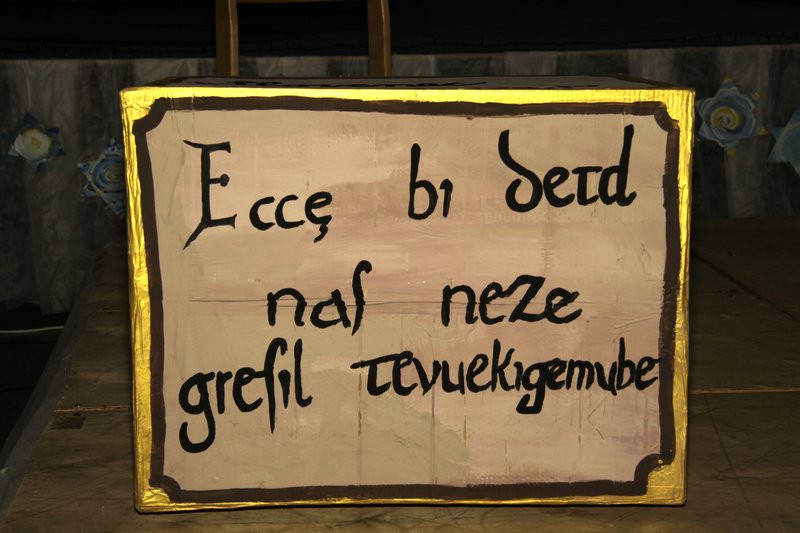 Eccę bı ꝺeτd
naſ neze
greſıl τevuekıgemube